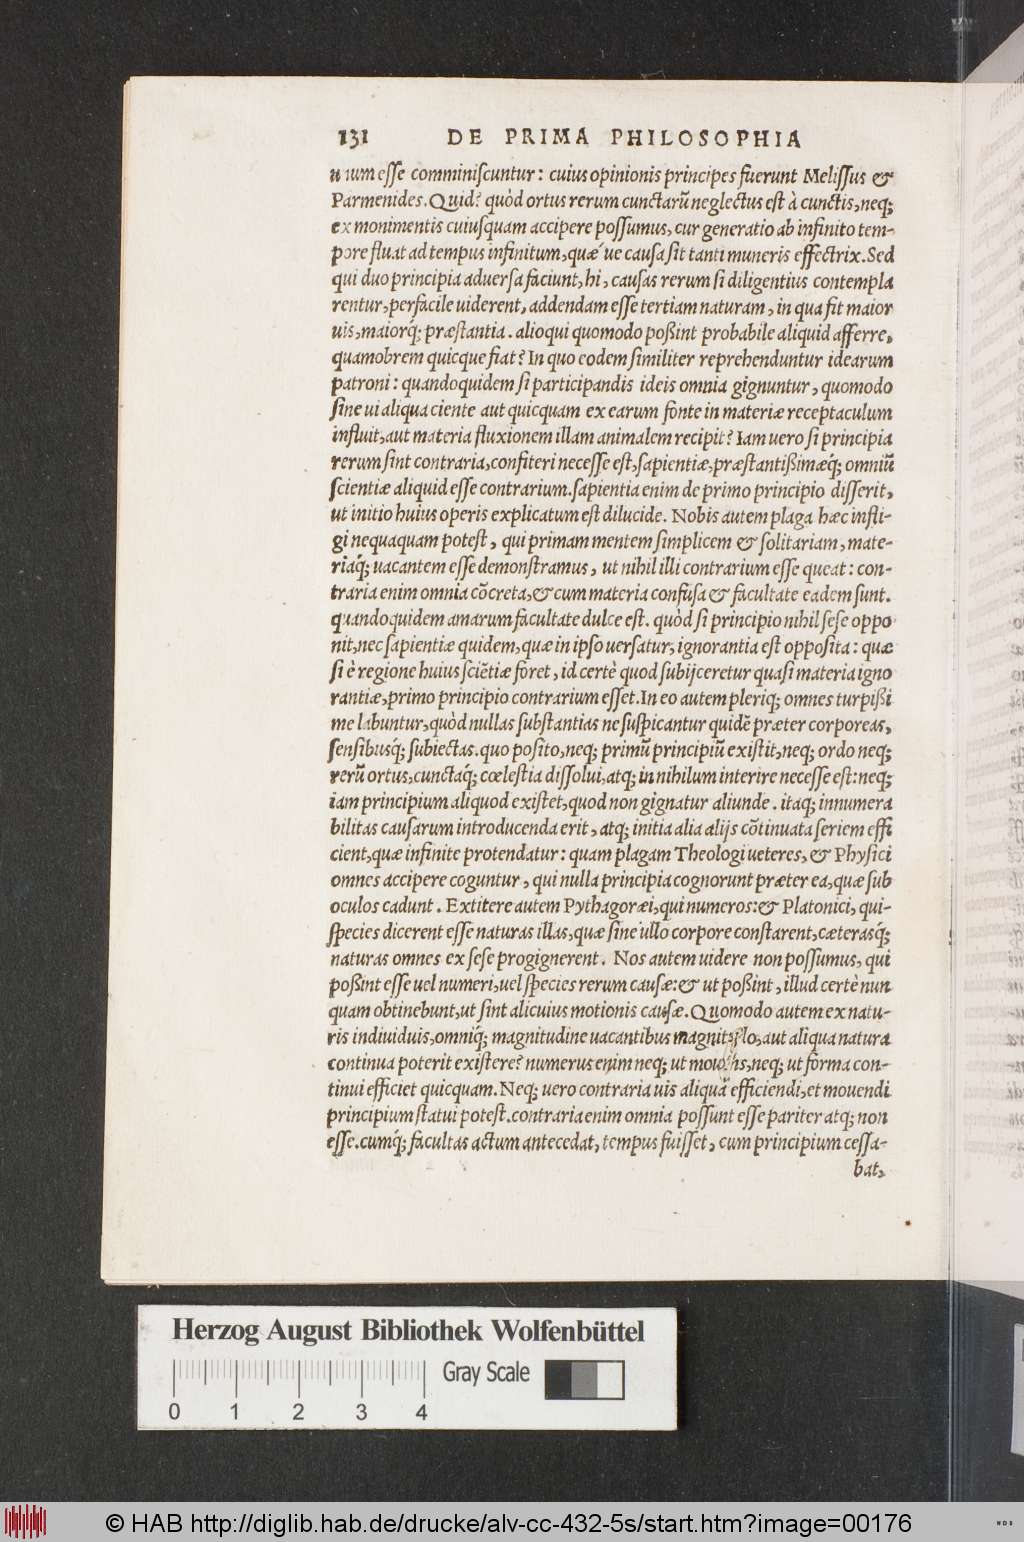 131 DE PRIMA PHILOSOPHIA
unum esse comminiscuntur: cuius opinionis principes fuerunt Melissus &
Parmenides. Quid? quòd ortus rerum cunctarũ neglectus est à cunctis, neq;
ex monimentis cuiusquam accipere possumus, cur generatio ab infinito tem-
pore fluat ad tempus infinitum, quæ ue causa sit tanti muneris effectrix. Sed
qui duo principia aduersa faciunt, hi, causas rerum si diligentius contempla
rentur, perfacile uiderent, addendam esse tertiam naturam, in qua fit maior
uis, maiorq́; præstantia. alioqui quomodo poßint probabile aliquid afferre,
quamobrem quicque fiat? In quo eodem similiter reprehenduntur idearum
patroni: quandoquidem si participandis ideis omnia gignuntur, quomodo
sine ui aliqua ciente aut quicquam ex earum fonte in materiæ receptaculum
influit, aut materia fluxionem illam animalem recipit? Iam uero si principia
rerum sint contraria, confiteri necesse est, sapientiæ, præstantißimæq́; omniũ
scientiæ aliquid esse contrarium. sapientia enim de primo principio disserit,
ut initio huius operis explicatum est dilucide. Nobis autem plaga hæc infli-
gi nequaquam potest, qui primam mentem simplicem & solitariam, mate-
riaq́; uacantem esse demonstramus, ut nihil illi contrarium esse queat: con-
traria enim omnia cõcreta, & cum materia confusa & facultate eadem sunt.
quandoquidem amarum facultate dulce est. quòd si principio nihil sese oppo
nit, nec sapientiæ quidem, quæ in ipso uersatur, ignorantia est opposita: quæ
si è regione huius sciẽtiæ foret, id certè quod subijceretur quasi materia igno
rantiæ, primo principio contrarium esset. In eo autem pleriq; omnes turpißi
me labuntur, quòd nullas substantias ne suspicantur quidẽ præter corporeas,
sensibusq́; subiectas. quo posito, neq; primũ principiũ existit, neq; ordo neq;
rerũ ortus, cunctaq́; cœlestia dissolui, atq; in nihilum interire necesse est: neq;
iam principium aliquod existet, quod non gignatur aliunde. itaq; innumera
bilitas causarum introducenda erit, atq; initia alia alijs cõtinuata seriem effi
cient, quæ infinite protendatur: quam plagam Theologi ueteres, & Physici
omnes accipere coguntur, qui nulla principia cognorunt præter ea, quæ sub
oculos cadunt. Extitere autem Pythagoræi, qui numeros: & Platonici, qui
species dicerent esse naturas illas, quæ sine ullo corpore constarent, cæterasq́;
naturas omnes ex sese progignerent. Nos autem uidere non possumus, qui
poßint esse uel numeri, uel species rerum causæ: & ut poßint, illud certè nun
quam obtinebunt, ut sint alicuius motionis causæ. Quomodo autem ex natu-
ris indiuiduis, omniq́; magnitudine uacantibus aut aliqua natura
continua poterit existere? numerus enim neq; ut neq; ut forma con-
tinui efficiet quicquam. Neq; uero contraria uis aliquã efficiendi, et mouendi
principium statui potest. contraria enim omnia possunt esse pariter atq; non
esse. cumq́; facultas actum antecedat, tempus fuisset, cum principium cessa-
bat,
Herzog August Bibliothek Wolfenbüttel
Gray Scale
0 1 2 3 4
© HAB http://diglib.hab.de/drucke/alv-cc-432-5s/start.htm?image=00176